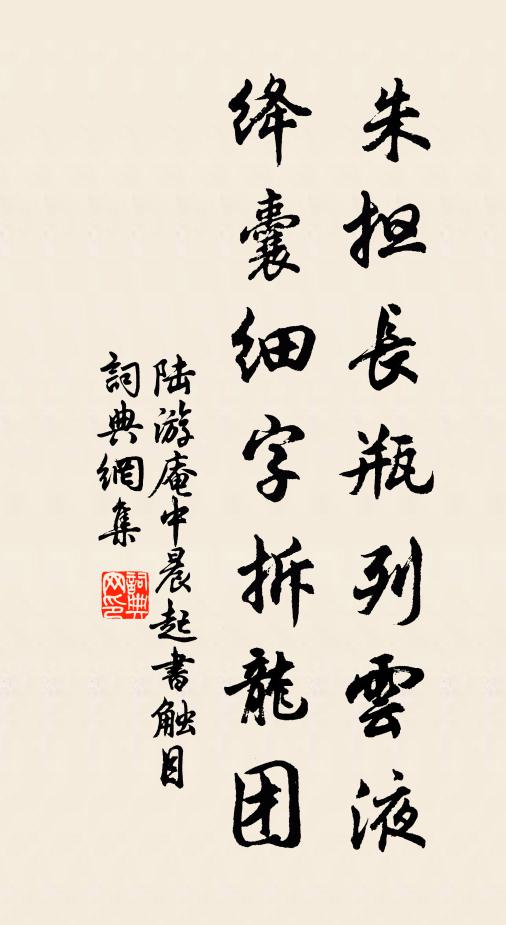 朱担長瓶列雲液
绛囊细字拆龍团
陆游庵中晨起書触目
詞典網集
詞典网印